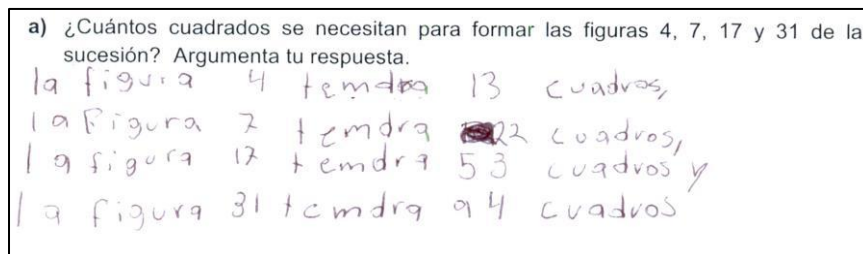 a) ¿Cuántos cuadrados se necesitan para formar las figuras 4, 7, 17 y 31 de la
sucesión? Argumenta tu respuesta.
la figura 4 temdra 13 cuadros,
la Figura 7 temdra 22 cuadros,
la figura 17 temdra 53 cuadros y
la figura 31 temdra 94 cuadros